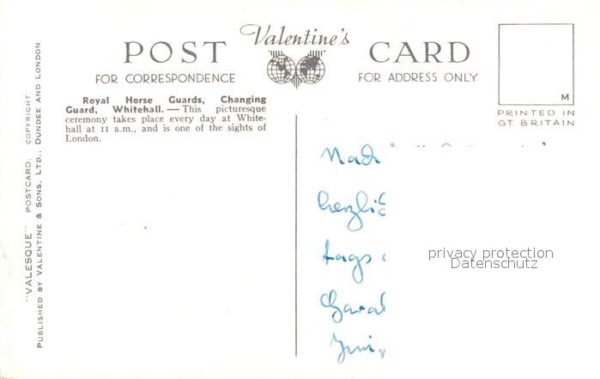 Valentine's
POST CARD
FOR CORRESPONDENCE
FOR ADDRESS ONLY
M
PRINTED IN
GT. BRITAIN
Royal Horse Guards, Changing
Guard, Whitehall. — This picturesque
ceremony takes place every day at White-
hall at 11 a.m., and is one of the sights of
London.
"VALESQUE" POSTCARD. COPYRIGHT.
PUBLISHED BY VALENTINE & SONS, LTD., DUNDEE AND LONDON
privacy protection
Datenschutz